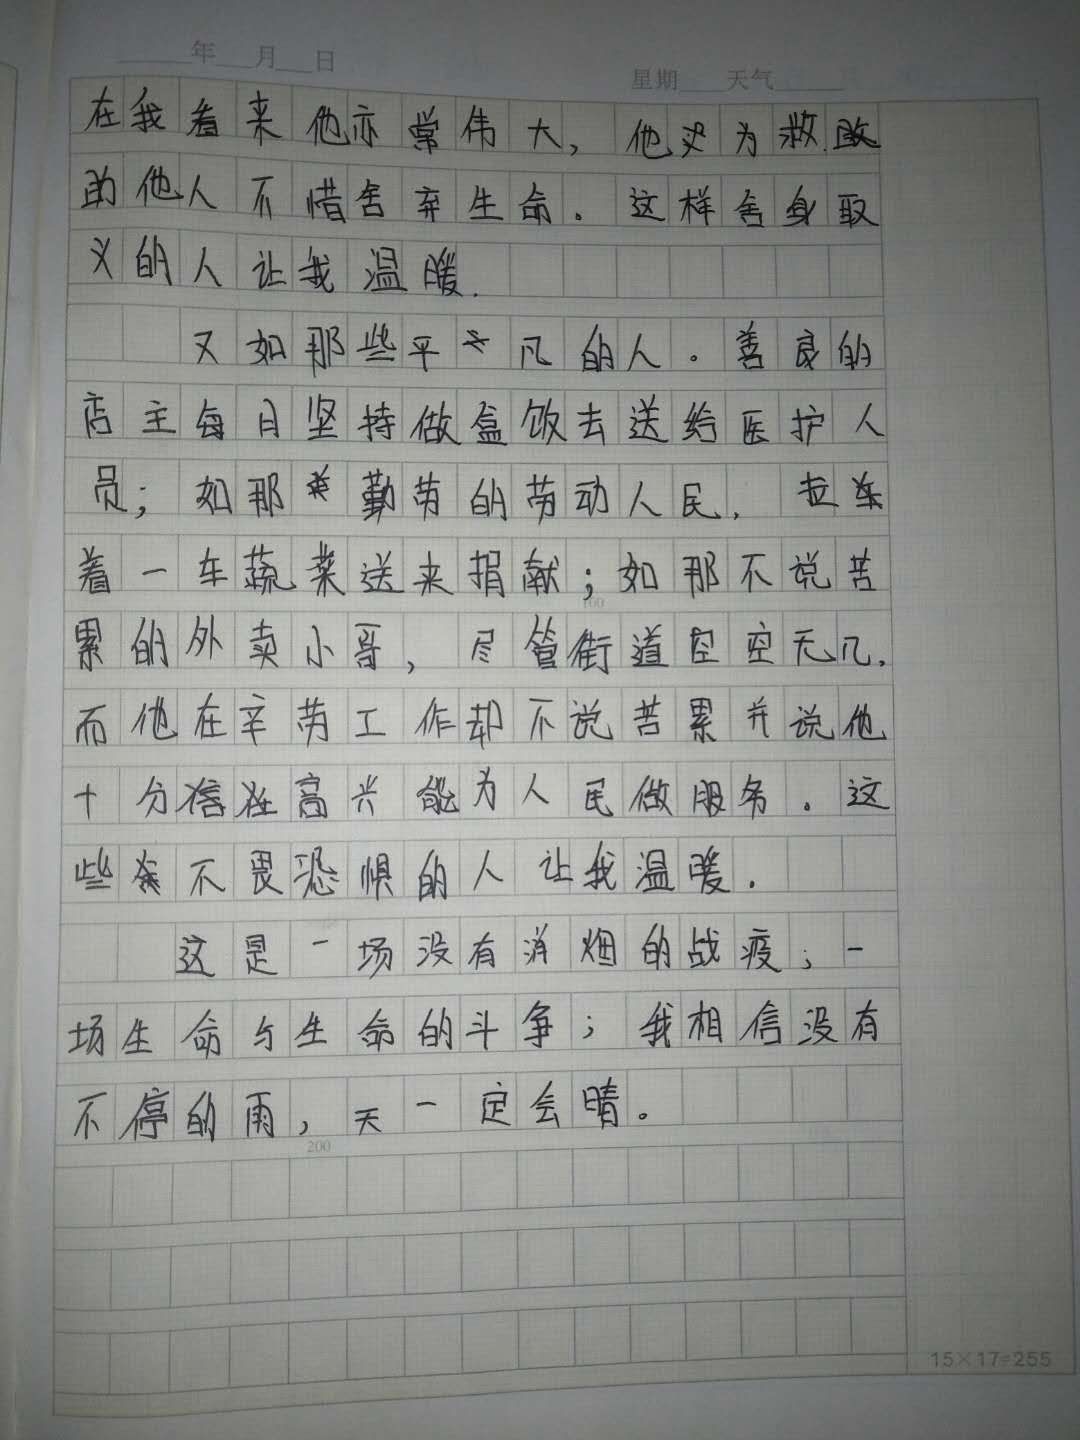 年 月 日
星期 天气
在我看来他亦常伟大，他为救
助他人不惜舍弃生命。这样舍身取
义的人让我温暖.
又如那些平凡的人。善良的
店主每日坚持做盒饭去送给医护人
员；如那勤劳的劳动人民，拉车
着一车蔬菜送来捐献；如那不说苦
100
累的外卖小哥，尽管街道空空无几，
而他在辛劳工作却不说苦累并说他
十分高兴能为人民做服务。这
些不畏恐惧的人让我温暖.
这是一场没有消烟的战疫；一
场生命与生命的斗争；我相信没有
不停的雨，天一定会晴。
200
15×17=255